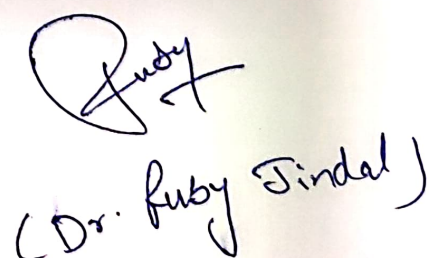 Ruby
(Dr. Ruby Jindal)